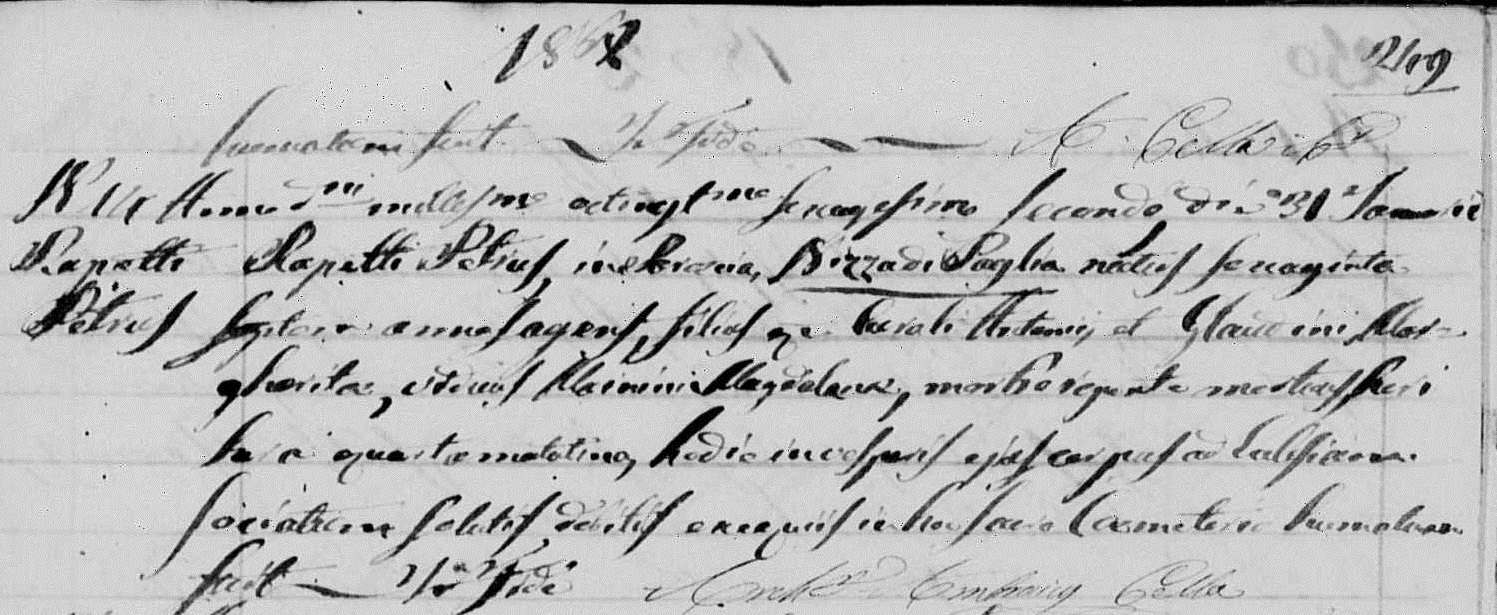 1862 249
humatum fuit In fide A. Cella
Anno Dni millesimo octingentmo sexagesimo secundo die 31 Januarii
Rapetti Rapetti Petrus, in Bizza di Paglia natus sexaginta
Petrus septem annos agens, filius qm Caroli Antonii et Glaudini Mar-
gherita, viduus Mainini Magdalena, morbo mortuus heri
hora quarta matutina, hodie in vesperis ejus corpus ad Ecclesiam
sociatum solutis debitis exequiis in hoc sacro Coemeterio humatum
fuit In Fide Cella